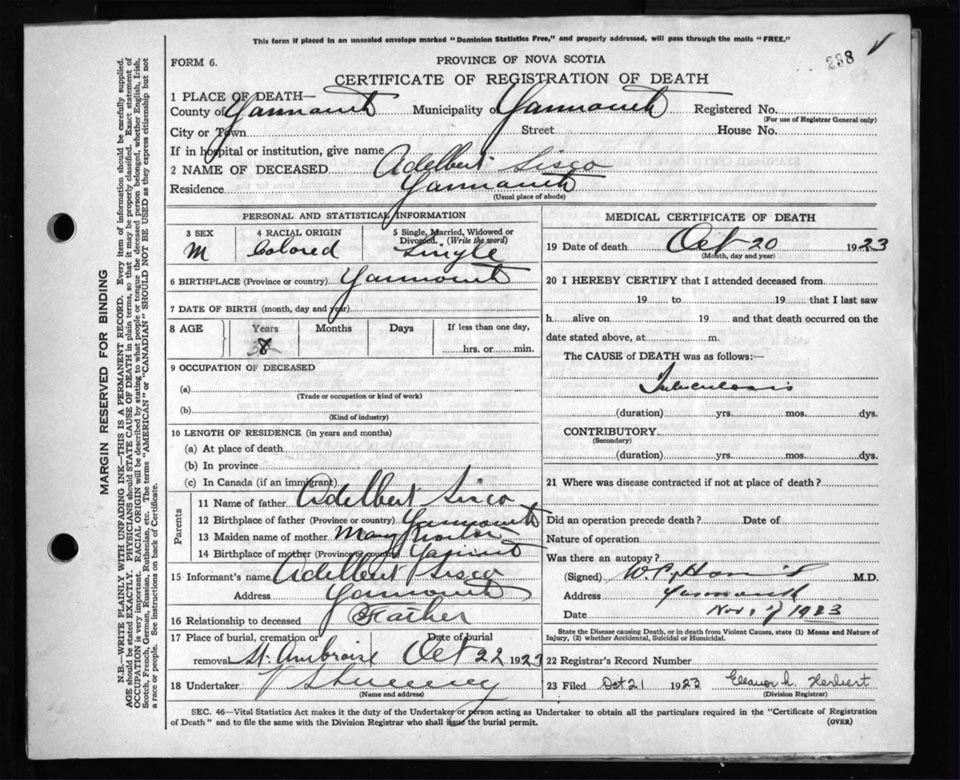 This form if placed in an unsealed envelope marked "Dominion Statistics Free," and properly addressed, will pass through the mails "FREE."
FORM 6.
PROVINCE OF NOVA SCOTIA
288
CERTIFICATE OF REGISTRATION OF DEATH
1 PLACE OF DEATH—
County of Yarmouth Municipality Yarmouth Registered No.
(For use of Registrar General only)
City or Town Street House No.
If in hospital or institution, give name
2 NAME OF DECEASED Adelbert Sisco
Residence Yarmouth
(Usual place of abode)
PERSONAL AND STATISTICAL INFORMATION
3 SEX 4 RACIAL ORIGIN 5 Single, Married, Widowed or Divorced. (Write the word)
M Colored Single
6 BIRTHPLACE (Province or country) Yarmouth
7 DATE OF BIRTH (month, day and year)
8 AGE Years Months Days If less than one day,
8 hrs. or min.
9 OCCUPATION OF DECEASED
(a)
(Trade or occupation or kind of work)
(b)
(Kind of industry)
10 LENGTH OF RESIDENCE (in years and months)
(a) At place of death
(b) In province
(c) In Canada (if an immigrant)
Parents
11 Name of father Adelbert Sisco
12 Birthplace of father (Province or country) Yarmouth
13 Maiden name of mother Mary
14 Birthplace of mother (Province or country) Yarmouth
15 Informant's name Adelbert Sisco
Address Yarmouth
16 Relationship to deceased Father
17 Place of burial, cremation or removal St. Ambroise Date of burial Oct 22 1923
18 Undertaker Sweeney
(Name and address)
MEDICAL CERTIFICATE OF DEATH
19 Date of death Oct 20 1923
(Month, day and year)
20 I HEREBY CERTIFY that I attended deceased from
19 to 19 that I last saw
h alive on 19 and that death occurred on the
date stated above, at m.
The CAUSE of DEATH was as follows:—
Tuberculosis
(duration) yrs. mos. dys.
CONTRIBUTORY
(Secondary)
(duration) yrs. mos. dys.
21 Where was disease contracted if not at place of death?
Did an operation precede death? Date of
Nature of operation
Was there an autopsy?
(Signed) M.D.
Address Yarmouth
Date Nov. 1923
State the Disease causing Death, or in death from Violent Causes, state (1) Means and Nature of
Injury, (2) whether Accidental, Suicidal or Homicidal.
22 Registrar's Record Number
23 Filed Oct 21 1923 Eleanor L. Herbert
(Division Registrar)
SEC. 46—Vital Statistics Act makes it the duty of the Undertaker or person acting as Undertaker to obtain all the particulars required in the "Certificate of Registration
of Death" and to file the same with the Division Registrar who shall issue the burial permit. (OVER)
MARGIN RESERVED FOR BINDING
N.B.—WRITE PLAINLY WITH UNFADING INK—THIS IS A PERMANENT RECORD. Every item of information should be carefully supplied.
AGE should be stated EXACTLY. PHYSICIANS should STATE CAUSE OF DEATH in plain terms, so that it may be properly classified. Exact statement of
OCCUPATION is very important. RACIAL ORIGIN will be described by stating to what people or tongue the deceased person belonged, whether English, Irish,
Scotch, French, German, Russian, Ruthenian, etc. The terms "AMERICAN" or "CANADIAN" SHOULD NOT BE USED as they express citizenship but not
a race or people. See instructions on back of Certificate.